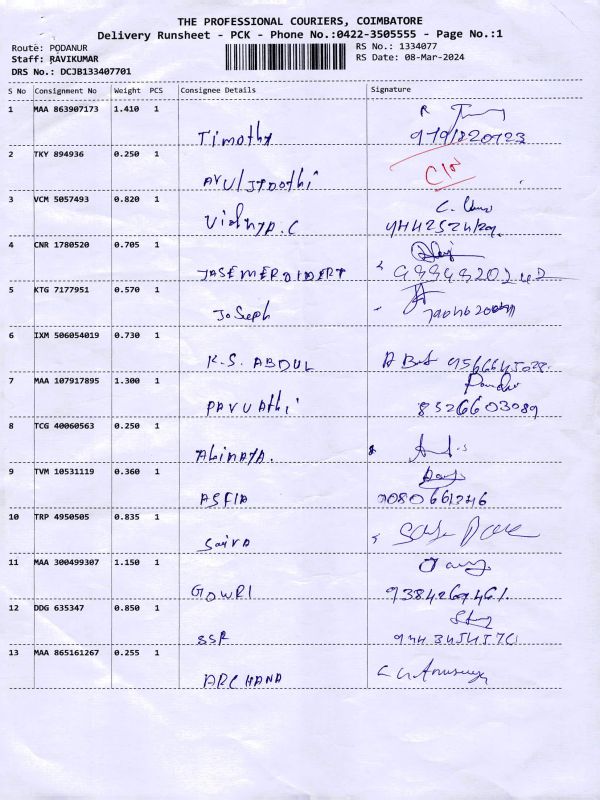 THE PROFESSIONAL COURIERS, COIMBATORE
Delivery Runsheet - PCK - Phone No.:0422-3505555 - Page No.:1
Route: PODANUR
Staff: RAVIKUMAR
DRS No.: DCJB133407701
RS No.: 1334077
RS Date: 08-Mar-2024
S No Consignment No Weight PCS Consignee Details Signature
1 MAA 863907173 1.410 1
Timothy
2 TKY 894936 0.250 1
3 VCM 5057493 0.820 1
4 CNR 1780520 0.705 1
5 KTG 7177951 0.570 1
Joseph
6 IXM 506054019 0.730 1
K.S. ABDUL
7 MAA 107917895 1.300 1
8526603089
8 TCG 40060563 0.250 1
Abinaya.
9 TVM 10531119 0.360 1
ASFIA
10 TRP 4950505 0.835 1
Saira
11 MAA 300499307 1.150 1
GOWRI
12 DDG 635347 0.850 1
SSR
13 MAA 865161267 0.255 1
ARCHANA